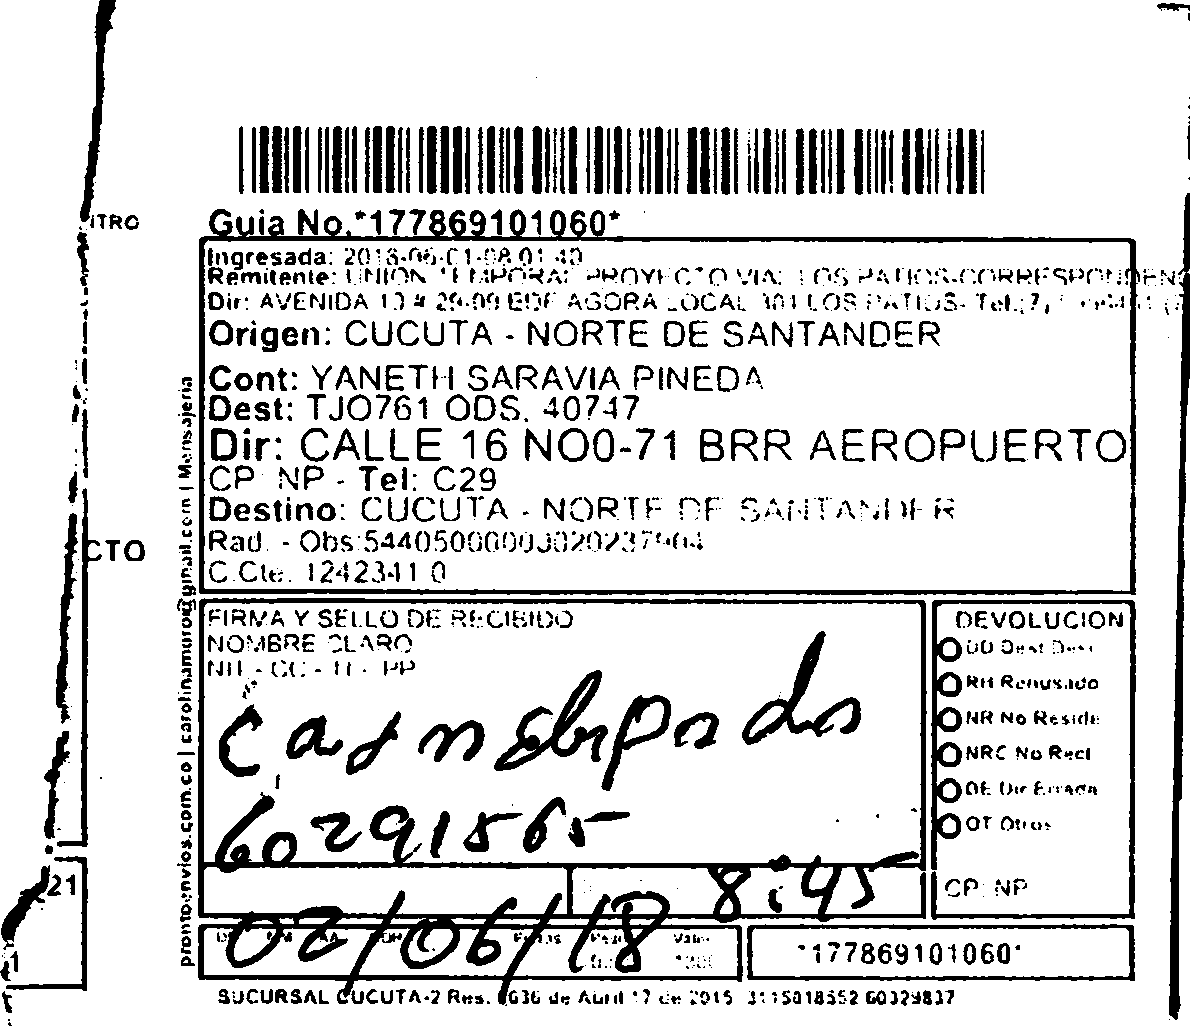 ITRO
Guia No.*177869101060*
Ingresada: 2018-06-01-08:01:40
Remitente: UNION TEMPORAL PROYECTO VIAL LOS PATIOS-CORRESPONDENC
Dir: AVENIDA 10 # 29-09 EDF AGORA LOCAL 301 LOS PATIOS- Tel:
Origen: CUCUTA - NORTE DE SANTANDER
Cont: YANETH SARAVIA PINEDA
Dest: TJO761 ODS. 40747
Dir: CALLE 16 NO0-71 BRR AEROPUERTO
CP: NP - Tel: C29
Destino: CUCUTA - NORTE DE SANTANDER
CTO
Rad. - Obs:
C.Cte. 1242341 0
prontoenvios.com.co | carolinamuro@gmail.com | Mensajeria
FIRMA Y SELLO DE RECIBIDO
NOMBRE CLARO
NIT - CC - TI - PP
60291565
8:45
02/06/18
DEVOLUCION
DD Dest Desc
RH Rehusado
NR No Reside
NRC No Recl
DE Dir Errada
OT Otros
CP: NP
21
1
*177869101060*
SUCURSAL CUCUTA-2 Res. de Abril 17 de 2015 3115018552 60329837